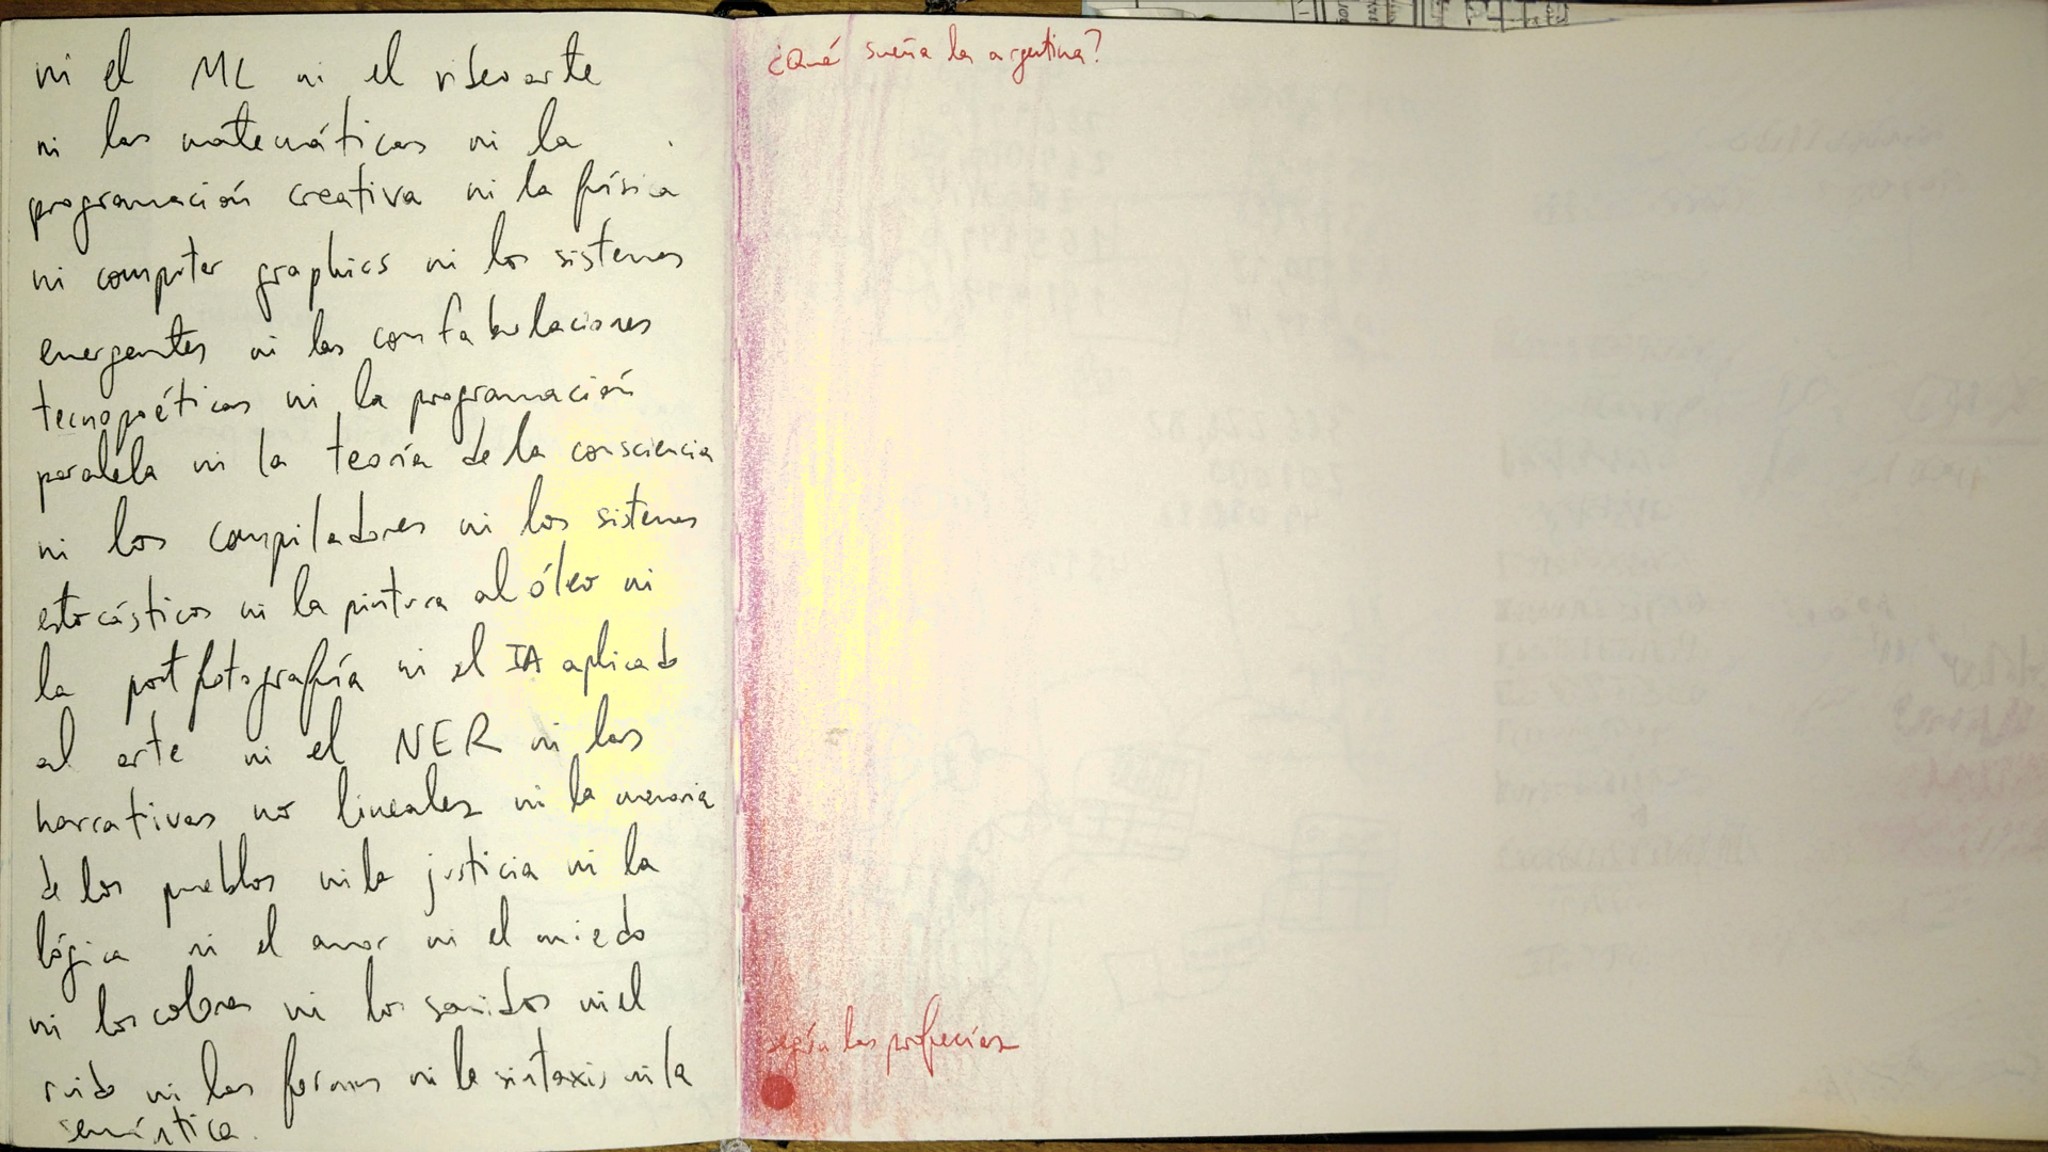 ni el ML ni el videoarte
ni las matemáticas ni la
programación creativa ni la física
ni computer graphics ni los sistemas
emergentes ni las confabulaciones
tecnopoéticas ni la programación
paralela ni la teoría de la consciencia
ni los compiladores ni los sistemas
estocásticos ni la pintura al óleo ni
la postfotografía ni el IA aplicado
al arte ni el NER ni las
narrativas no lineales ni la memoria
de los pueblos ni la justicia ni la
lógica ni el amor ni el miedo
ni los colores ni los sonidos ni el
ruido ni las formas ni la sintaxis ni la
semántica.
¿Qué sueña la argentina?
según las profecías